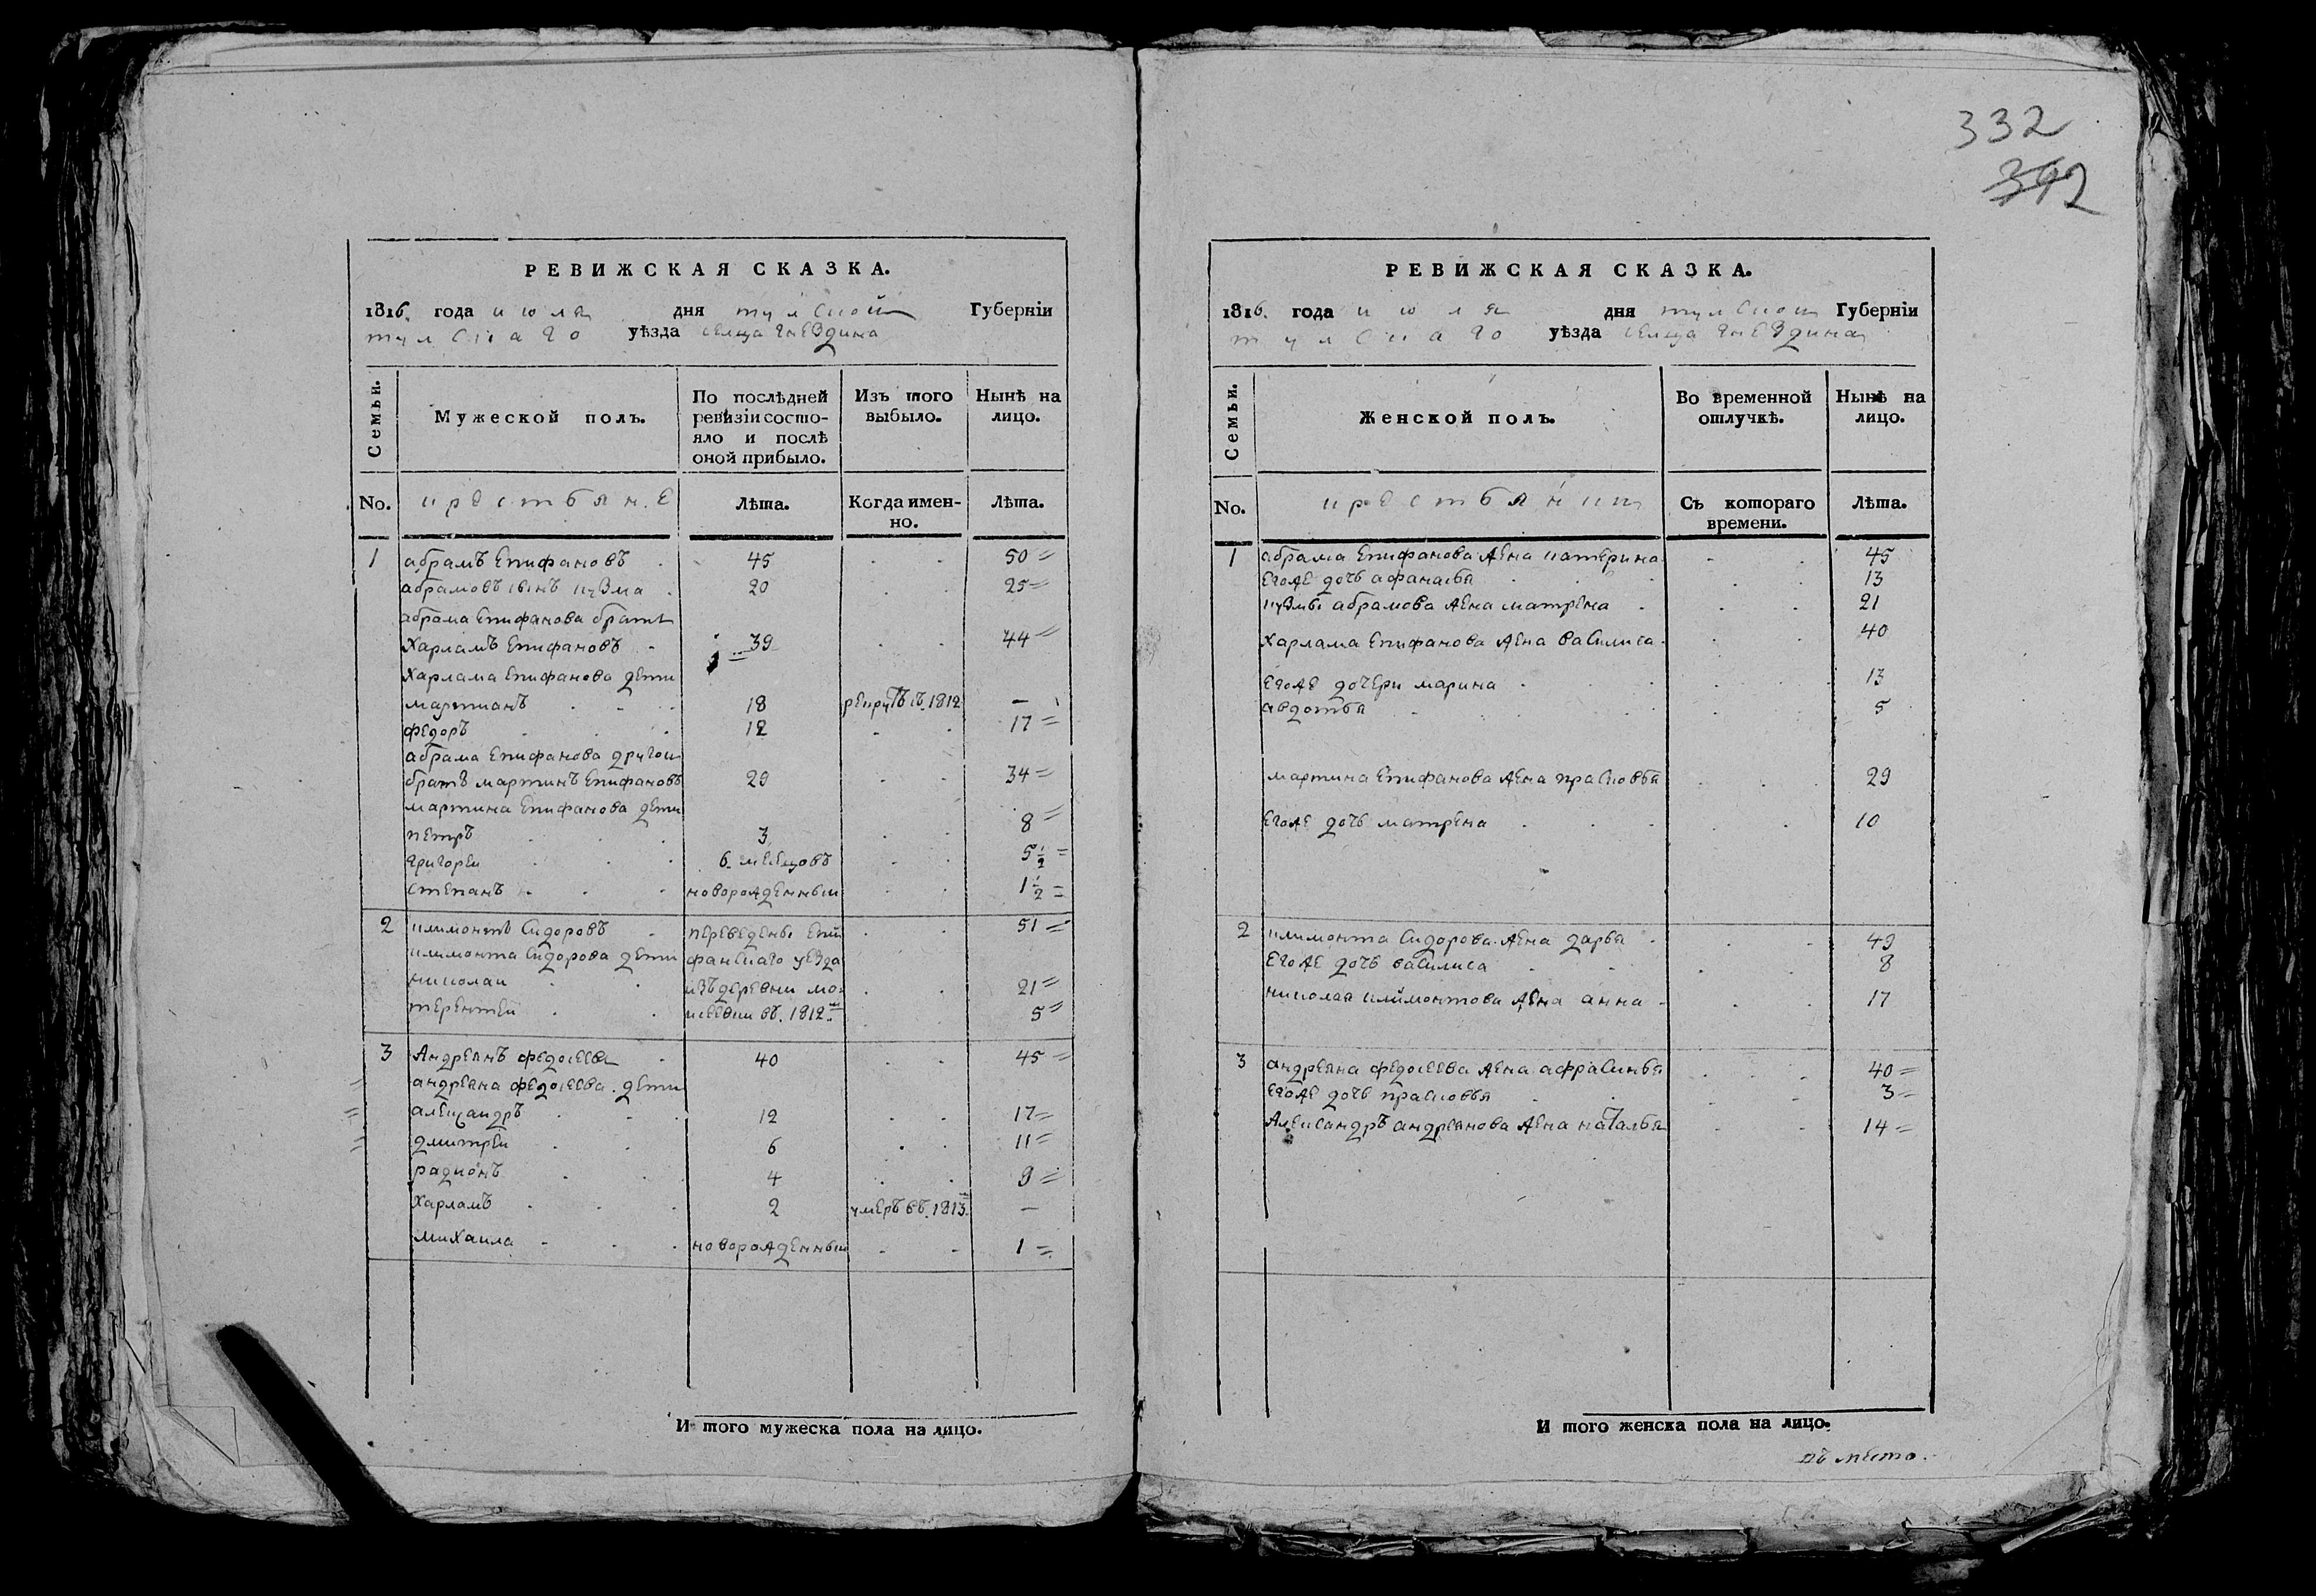 332
392
РЕВИЖСКАЯ СКАЗКА.
1816. года июля дня тулской Губерніи
тулскаго уѣзда селца гнездина
Семьи. Мужеской полъ. По послѣдней ревизіи состояло и послѣ оной прибыло. Изъ того выбыло. Нынѣ на лицо.
No. крестьяне Лѣта. Когда именно. Лѣта.
1 абрамъ Епифановъ 45 50
абрамовъ сынъ кузма 20 25
абрама Епифанова братъ
Харламъ Епифановъ 39 44
Харлама Епифанова дети
мартианъ 18 рекрутъ въ 1812 —
федоръ 12 17
абрама Епифанова другои
братъ мартинъ Епифановъ 29 34
мартина Епифанова дети
петръ 3 8
григореи 6 месецовъ 5 1/2
степанъ новорожденныи 1 1/2
2 климонтъ Сидоровъ переведены епи 51
климонта Сидорова дети фанскаго уезда
николаи изъ деревни мо 21
терентеи въ 1812 5
3 Андреянъ федосеевъ 40 45
андреяна федосеева дети
александръ 12 17
дмитреи 6 11
радионъ 4 9
Харламъ 2 умеръ въ 1813 —
михаила новорожденныи 1
И того мужеска пола на лицо.
РЕВИЖСКАЯ СКАЗКА.
1816. года июля дня тулскои Губерніи
тулскаго уѣзда селца гнездина
Семьи. Женской полъ. Во временной отлучкѣ. Нынѣ на лицо.
No. крестьянки Съ котораго времени. Лѣта.
1 абрама Епифанова жена катерина 45
егоже дочь афанасья 13
кузмы абрамова жена матрена 21
Харлама Епифанова жена василиса 40
егоже дочери марина 13
авдотья 5
мартина Епифанова жена прасковья 29
егоже дочь матрена 10
2 климонта Сидорова жена дарья 49
егоже дочь василиса 8
николая климонтова жена анна 17
3 андреяна федосеева жена афрасинья 40
егоже дочь прасковья 3
Александръ андреянова жена наталья 14
И того женска пола на лицо.